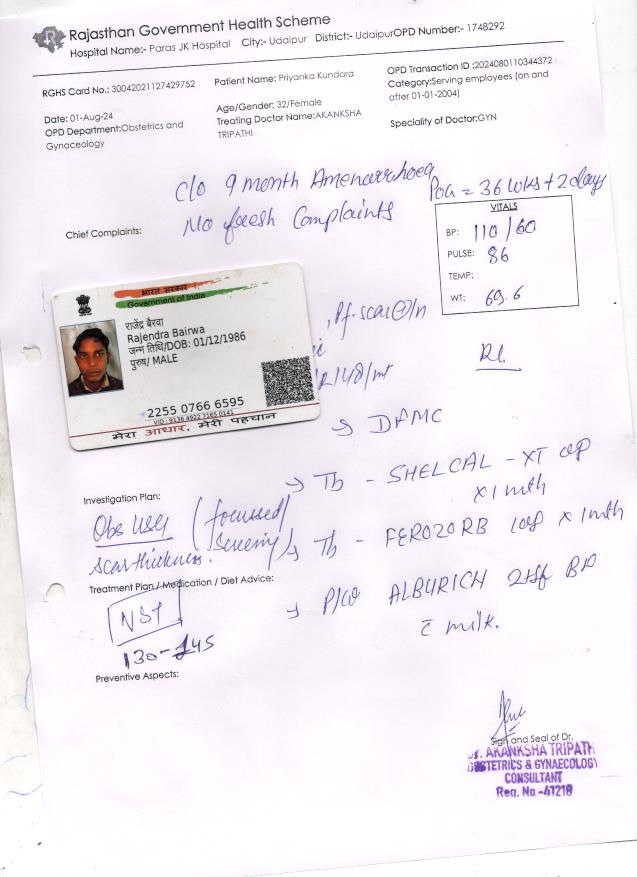 Rajasthan Government Health Scheme
Hospital Name:- Paras JK Hospital City:- Udaipur District:- Udaipur OPD Number:- 1748292
RGHS Card No.: 30042021127429752
Patient Name: Priyanka Kundara
OPD Transaction ID :2024080110344372
Category:Serving employees (on and
after 01-01-2004)
Date: 01-Aug-24
Age/Gender: 32/Female
OPD Department:Obstetrics and
Gynaceology
Treating Doctor Name:AKANKSHA
TRIPATHI
Speciality of Doctor:GYN
c/o 9 month Amenorrhoea
POG = 36 wks + 2 days
Chief Complaints:
No fresh Complaints
VITALS
BP: 110/60
PULSE: 86
TEMP:
WT: 69.6
भारत सरकार
Government of India
राजेंद्र बैरवा
Rajendra Bairwa
जन्म तिथि/DOB: 01/12/1986
पुरुष/ MALE
2255 0766 6595
VID: 9136 4922 7165 0141
मेरा आधार, मेरी पहचान
→ DFMC
→ Tb - SHELCAL - XT
x 1 mth
Investigation Plan:
Obs USG (focussed
screening)
scar thickness.
→ Tb - FEROZORB x 1 mth
Treatment Plan / Medication / Diet Advice:
NST
130-145
→ ALBURICH 2tsf BD
c̄ milk.
Preventive Aspects:
Sign and Seal of Dr.
AKANKSHA TRIPATH
OBSTETRICS & GYNAECOLOGY
CONSULTANT
Reg. No.-41218